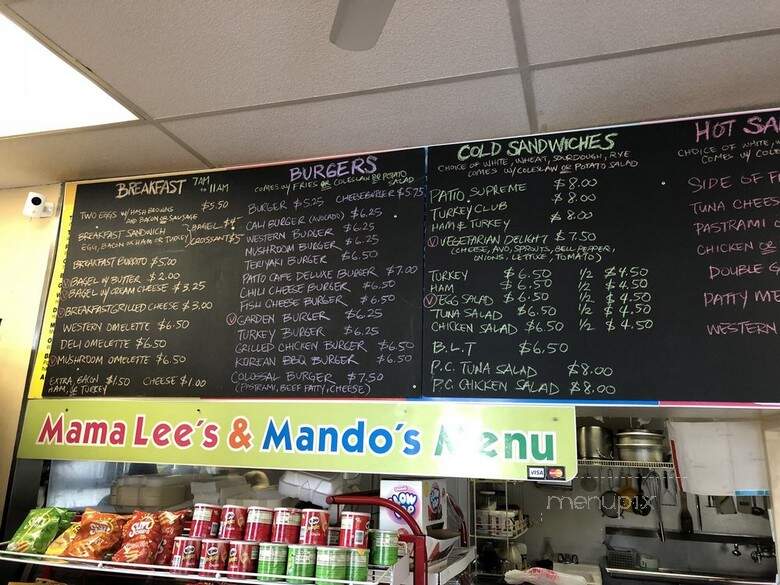 BREAKFAST 7AM TO 11AM
TWO EGGS W/ HASH BROWNS $5.50
AND BACON OR SAUSAGE
BREAKFAST SANDWICH BAGEL $4
EGG, BACON OR HAM OR TURKEY CROISSANT $5
BREAKFAST BURRITO $5.00
V BAGEL W/ BUTTER $2.00
V BAGEL W/ CREAM CHEESE $3.25
V BREAKFAST GRILLED CHEESE $3.00
WESTERN OMELETTE $6.50
DELI OMELETTE $6.50
V MUSHROOM OMELETTE $6.50
EXTRA, BACON $1.50 CHEESE $1.00
HAM, OR TURKEY
BURGERS
COMES W/ FRIES OR COLESLAW OR POTATO SALAD
BURGER $5.25 CHEESEBURGER $5.75
CALI BURGER (AVOCADO) $6.25
WESTERN BURGER $6.25
MUSHROOM BURGER $6.25
TERIYAKI BURGER $6.50
PATIO CAFE DELUXE BURGER $7.00
CHILI CHEESE BURGER $6.50
FISH CHEESE BURGER $6.50
V GARDEN BURGER $6.25
TURKEY BURGER $6.25
GRILLED CHICKEN BURGER $6.50
KOREAN BBQ BURGER $6.50
COLOSSAL BURGER $7.50
(PASTRAMI, BEEF PATTY, CHEESE)
COLD SANDWICHES
CHOICE OF WHITE, WHEAT, SOURDOUGH, RYE
COMES W/ COLESLAW OR POTATO SALAD
PATIO SUPREME $8.00
TURKEY CLUB $8.00
HAM & TURKEY $8.00
V VEGETARIAN DELIGHT $7.50
(CHEESE, AVO, SPROUTS, BELL PEPPER,
ONIONS, LETTUCE, TOMATO)
TURKEY $6.50 1/2 $4.50
HAM $6.50 1/2 $4.50
V EGG SALAD $6.50 1/2 $4.50
TUNA SALAD $6.50 1/2 $4.50
CHICKEN SALAD $6.50 1/2 $4.50
B.L.T $6.50
P.C. TUNA SALAD $8.00
P.C. CHICKEN SALAD $8.00
HOT SA
CHOICE OF WHITE, W
COMES W/ COLE
SIDE OF F
TUNA CHEES
PASTRAMI
CHICKEN OR
DOUBLE G
PATTY ME
WESTERN
Mama Lee's & Mando's Menu
VISA MasterCard
menupix